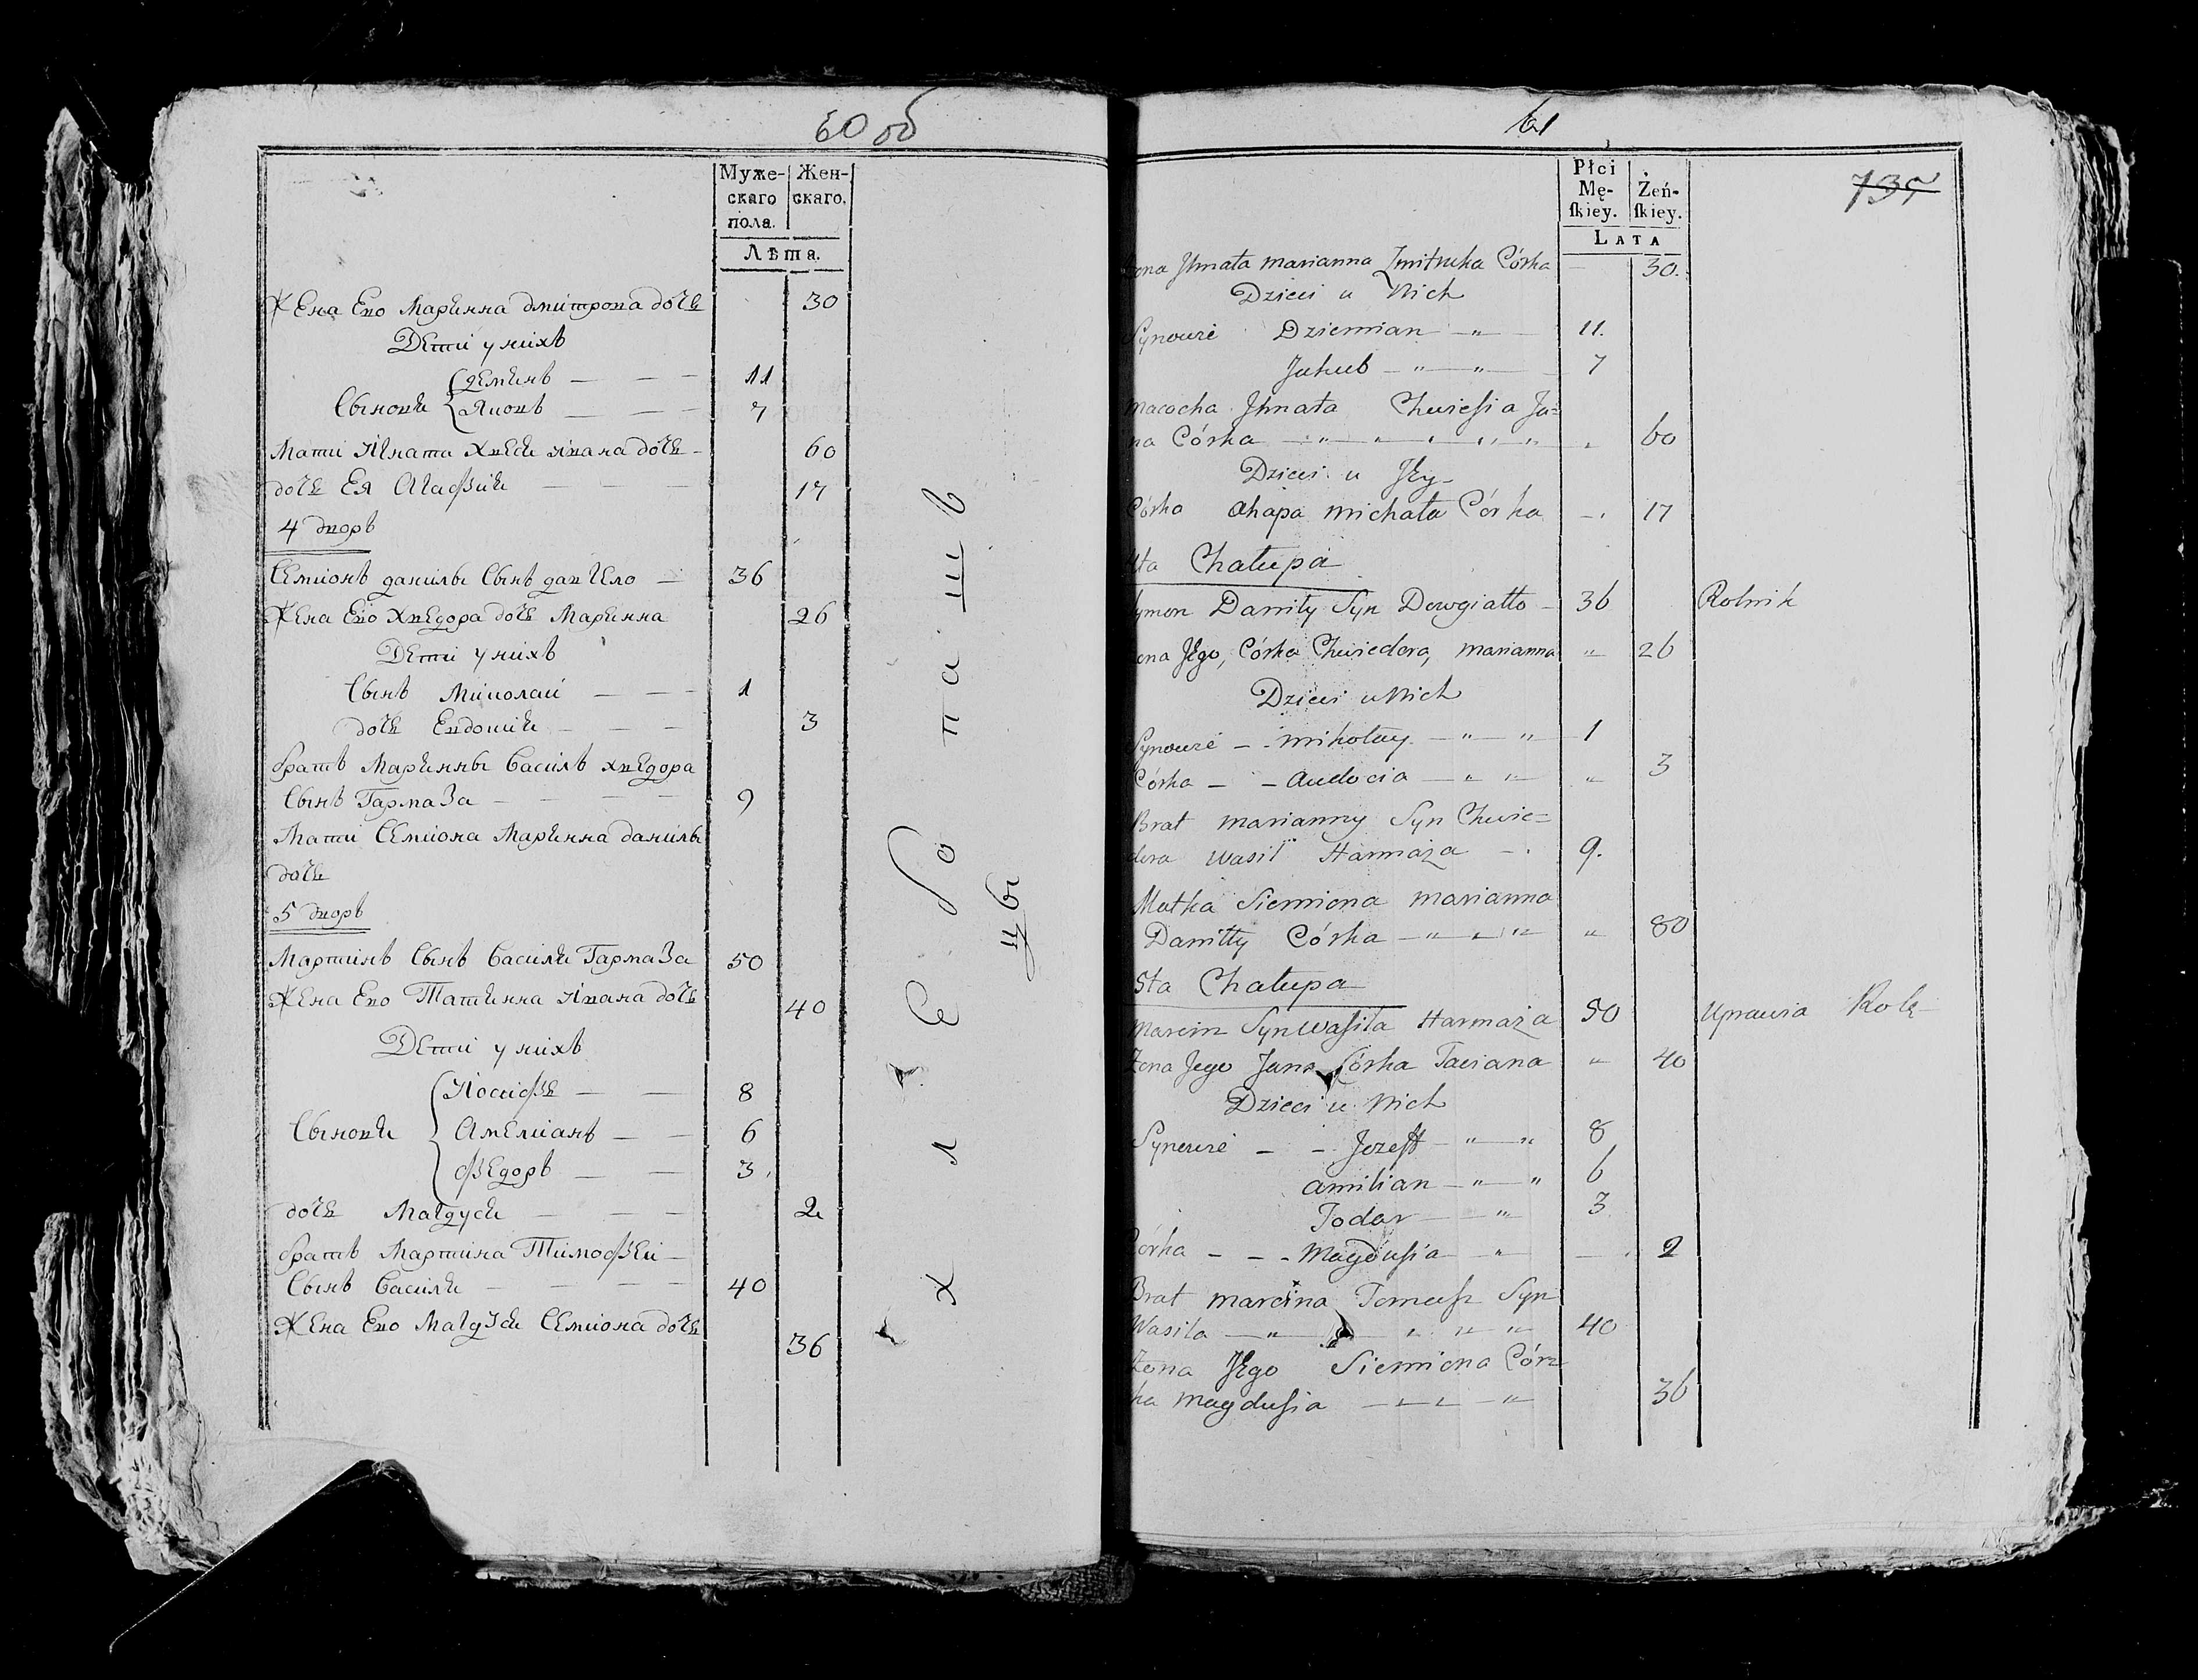 60 об
Муже-
скаго
пола.
Жен-
скаго.
Лѣта.
Жена Ево Марьянна дмитрова дочь 30
Дети у нихъ
Сыновья демьянъ — — — 11
Яковъ — — — 7
Мати Игната Хвесья Ивана дочь - 60
дочь Ея Агафья — — — 17
4 дворъ
Семионъ данилы Сынъ давгело — 36
Жена Ево Хведора дочь Марьянна 26
Дети у нихъ
Сынъ Миколай — — — 1
дочь Евдокия — — — 3
братъ Марьянны Василь хведора
Сынъ Гармаза — — — — 9
Мати Семиона Марьянна данилы
дочь
5 дворъ
Мартинъ Сынъ Василья Гармаза 50
Жена Ево Татьянна Ивана дочь 40
Дети у нихъ
Иосифъ — — 8
Сыновья Амелианъ — — 6
Федоръ — — 3
дочь Магдуся — — — 2
братъ Мартина Тимофей —
Сынъ Василья — — — — 40
Жена Ево Магдуся Семиона дочь 36
Хлебопашцы
61
735
Płci
Mę-
ſkiey.
Żeń-
ſkiey.
LATA
żona Jhnata marianna Zmitruka Córka — 30.
Dzieci u Nich
Synowie Dziemian — " — 11.
Jakub — " — " — 7
macocha Jhnata Chwieſia Ja=
na Córka — " — " " 60
Dzieci u Jey -
Córka ahapa michała Córka — 17
4ta Chałupa
Symon Daniły Syn Dowgiałło — 36 Rolnik
żona Jego, Córka Chwiedora, marianna " 26
Dzieci u Nich
Synowie — mikołay — " — " 1
Córka — — audocia — " " " 3
Brat marianny Syn Chwie=
dora wasil Harmaza — 9.
Matka Siemiona marianna
Daniłły Córka — " " " " 80
5ta Chałupa
Marcin Syn waſila Harmaza 50 Uprawia Rolę
Żona Jego Jana Córka Taciana " 40
Dzieci u Nich
Synowie — — Jozeff — " — " 8
amilian — " — " 6
Todar — — " 3
Córka — — — Magduſia — " — 2
Brat marcina Tomaſz Syn
Wasila — " — " " " 40
Żona Jego Siemiona Cór=
ka magduſia — — — " 36